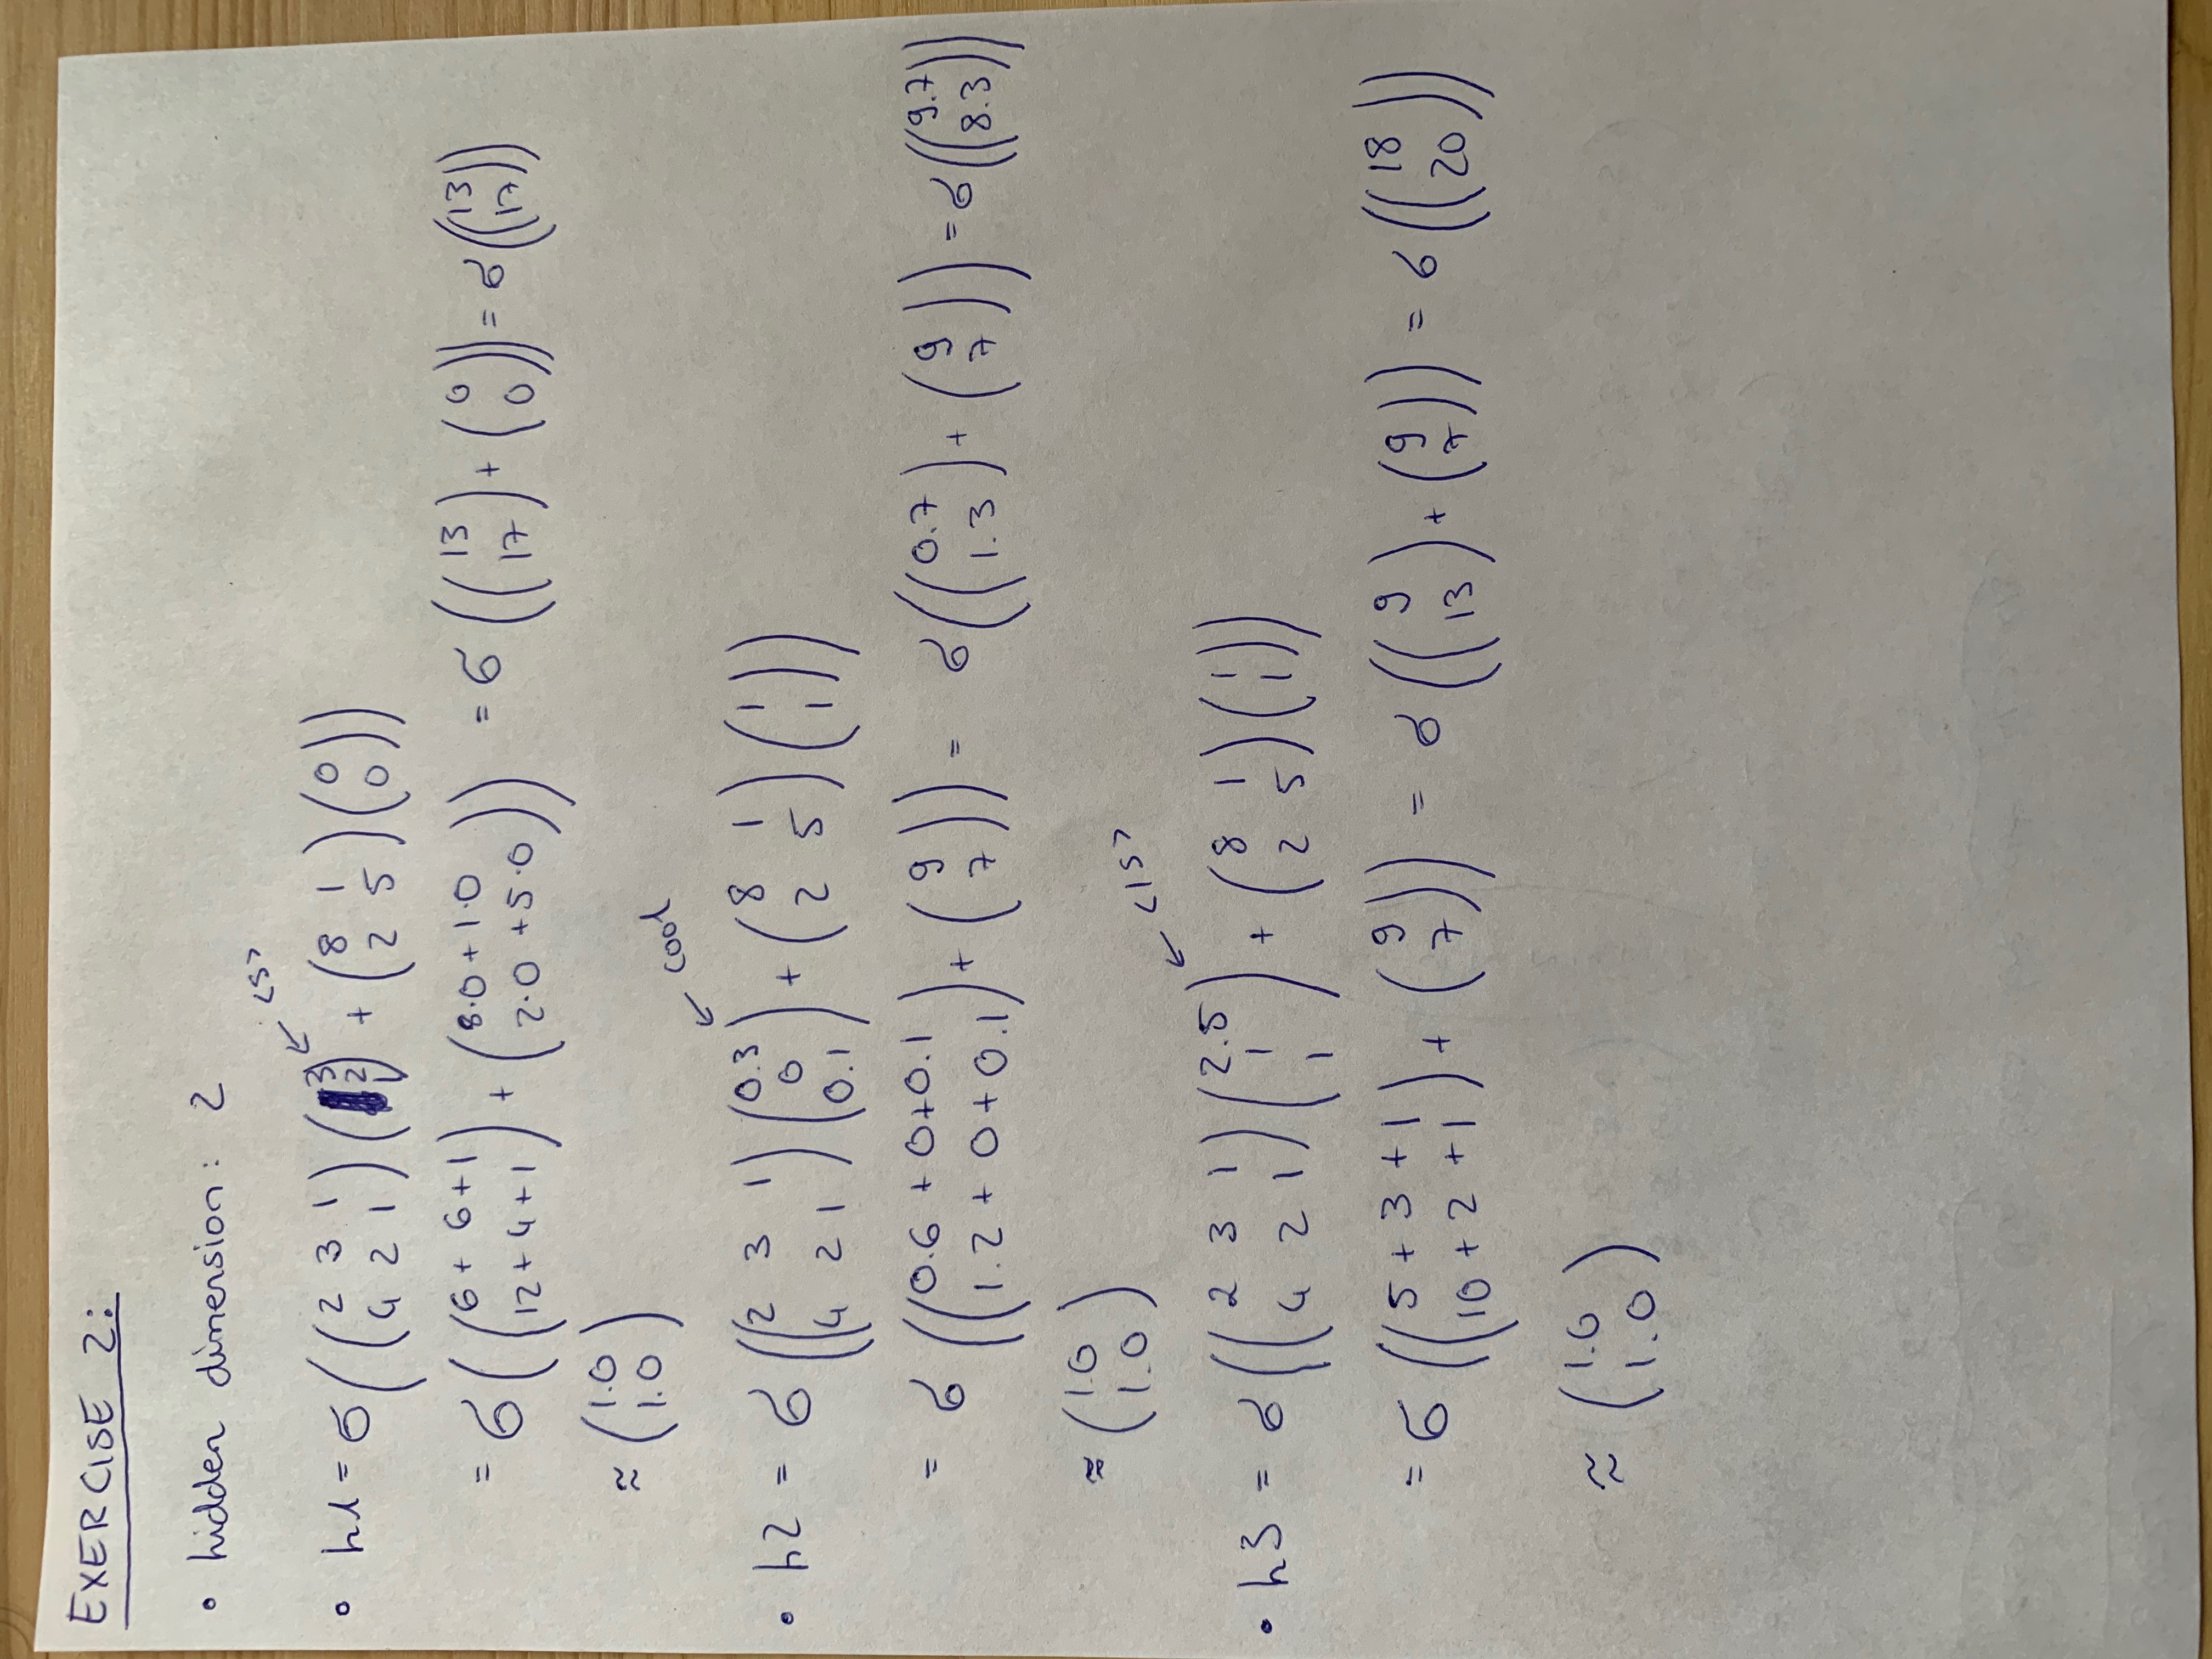 EXERCISE 2:
• hidden dimension: 2
<S>
• h1 = σ ( ( 2 3 1 ; 4 2 1 ) ( 3 ; 2 ; 1 ) + ( 8 1 ; 2 5 ) ( 0 ; 0 ) )
= σ ( ( 6 + 6 + 1 ; 12 + 4 + 1 ) + ( 8·0 + 1·0 ; 2·0 + 5·0 ) ) = σ ( ( 13 ; 17 ) + ( 0 ; 0 ) ) = σ ( ( 13 ; 17 ) )
≈ ( 1.0 ; 1.0 )
cool
• h2 = σ ( ( 2 3 1 ; 4 2 1 ) ( 0.3 ; 0 ; 0.1 ) + ( 8 1 ; 2 5 ) ( 1 ; 1 ) )
= σ ( ( 0.6 + 0 + 0.1 ; 1.2 + 0 + 0.1 ) + ( 9 ; 7 ) ) = σ ( ( 0.7 ; 1.3 ) + ( 9 ; 7 ) ) = σ ( ( 9.7 ; 8.3 ) )
≈ ( 1.0 ; 1.0 )
</S>
• h3 = σ ( ( 2 3 1 ; 4 2 1 ) ( 2.5 ; 1 ; 1 ) + ( 8 1 ; 2 5 ) ( 1 ; 1 ) )
= σ ( ( 5 + 3 + 1 ; 10 + 2 + 1 ) + ( 9 ; 7 ) ) = σ ( ( 9 ; 13 ) + ( 9 ; 7 ) ) = σ ( ( 18 ; 20 ) )
≈ ( 1.0 ; 1.0 )